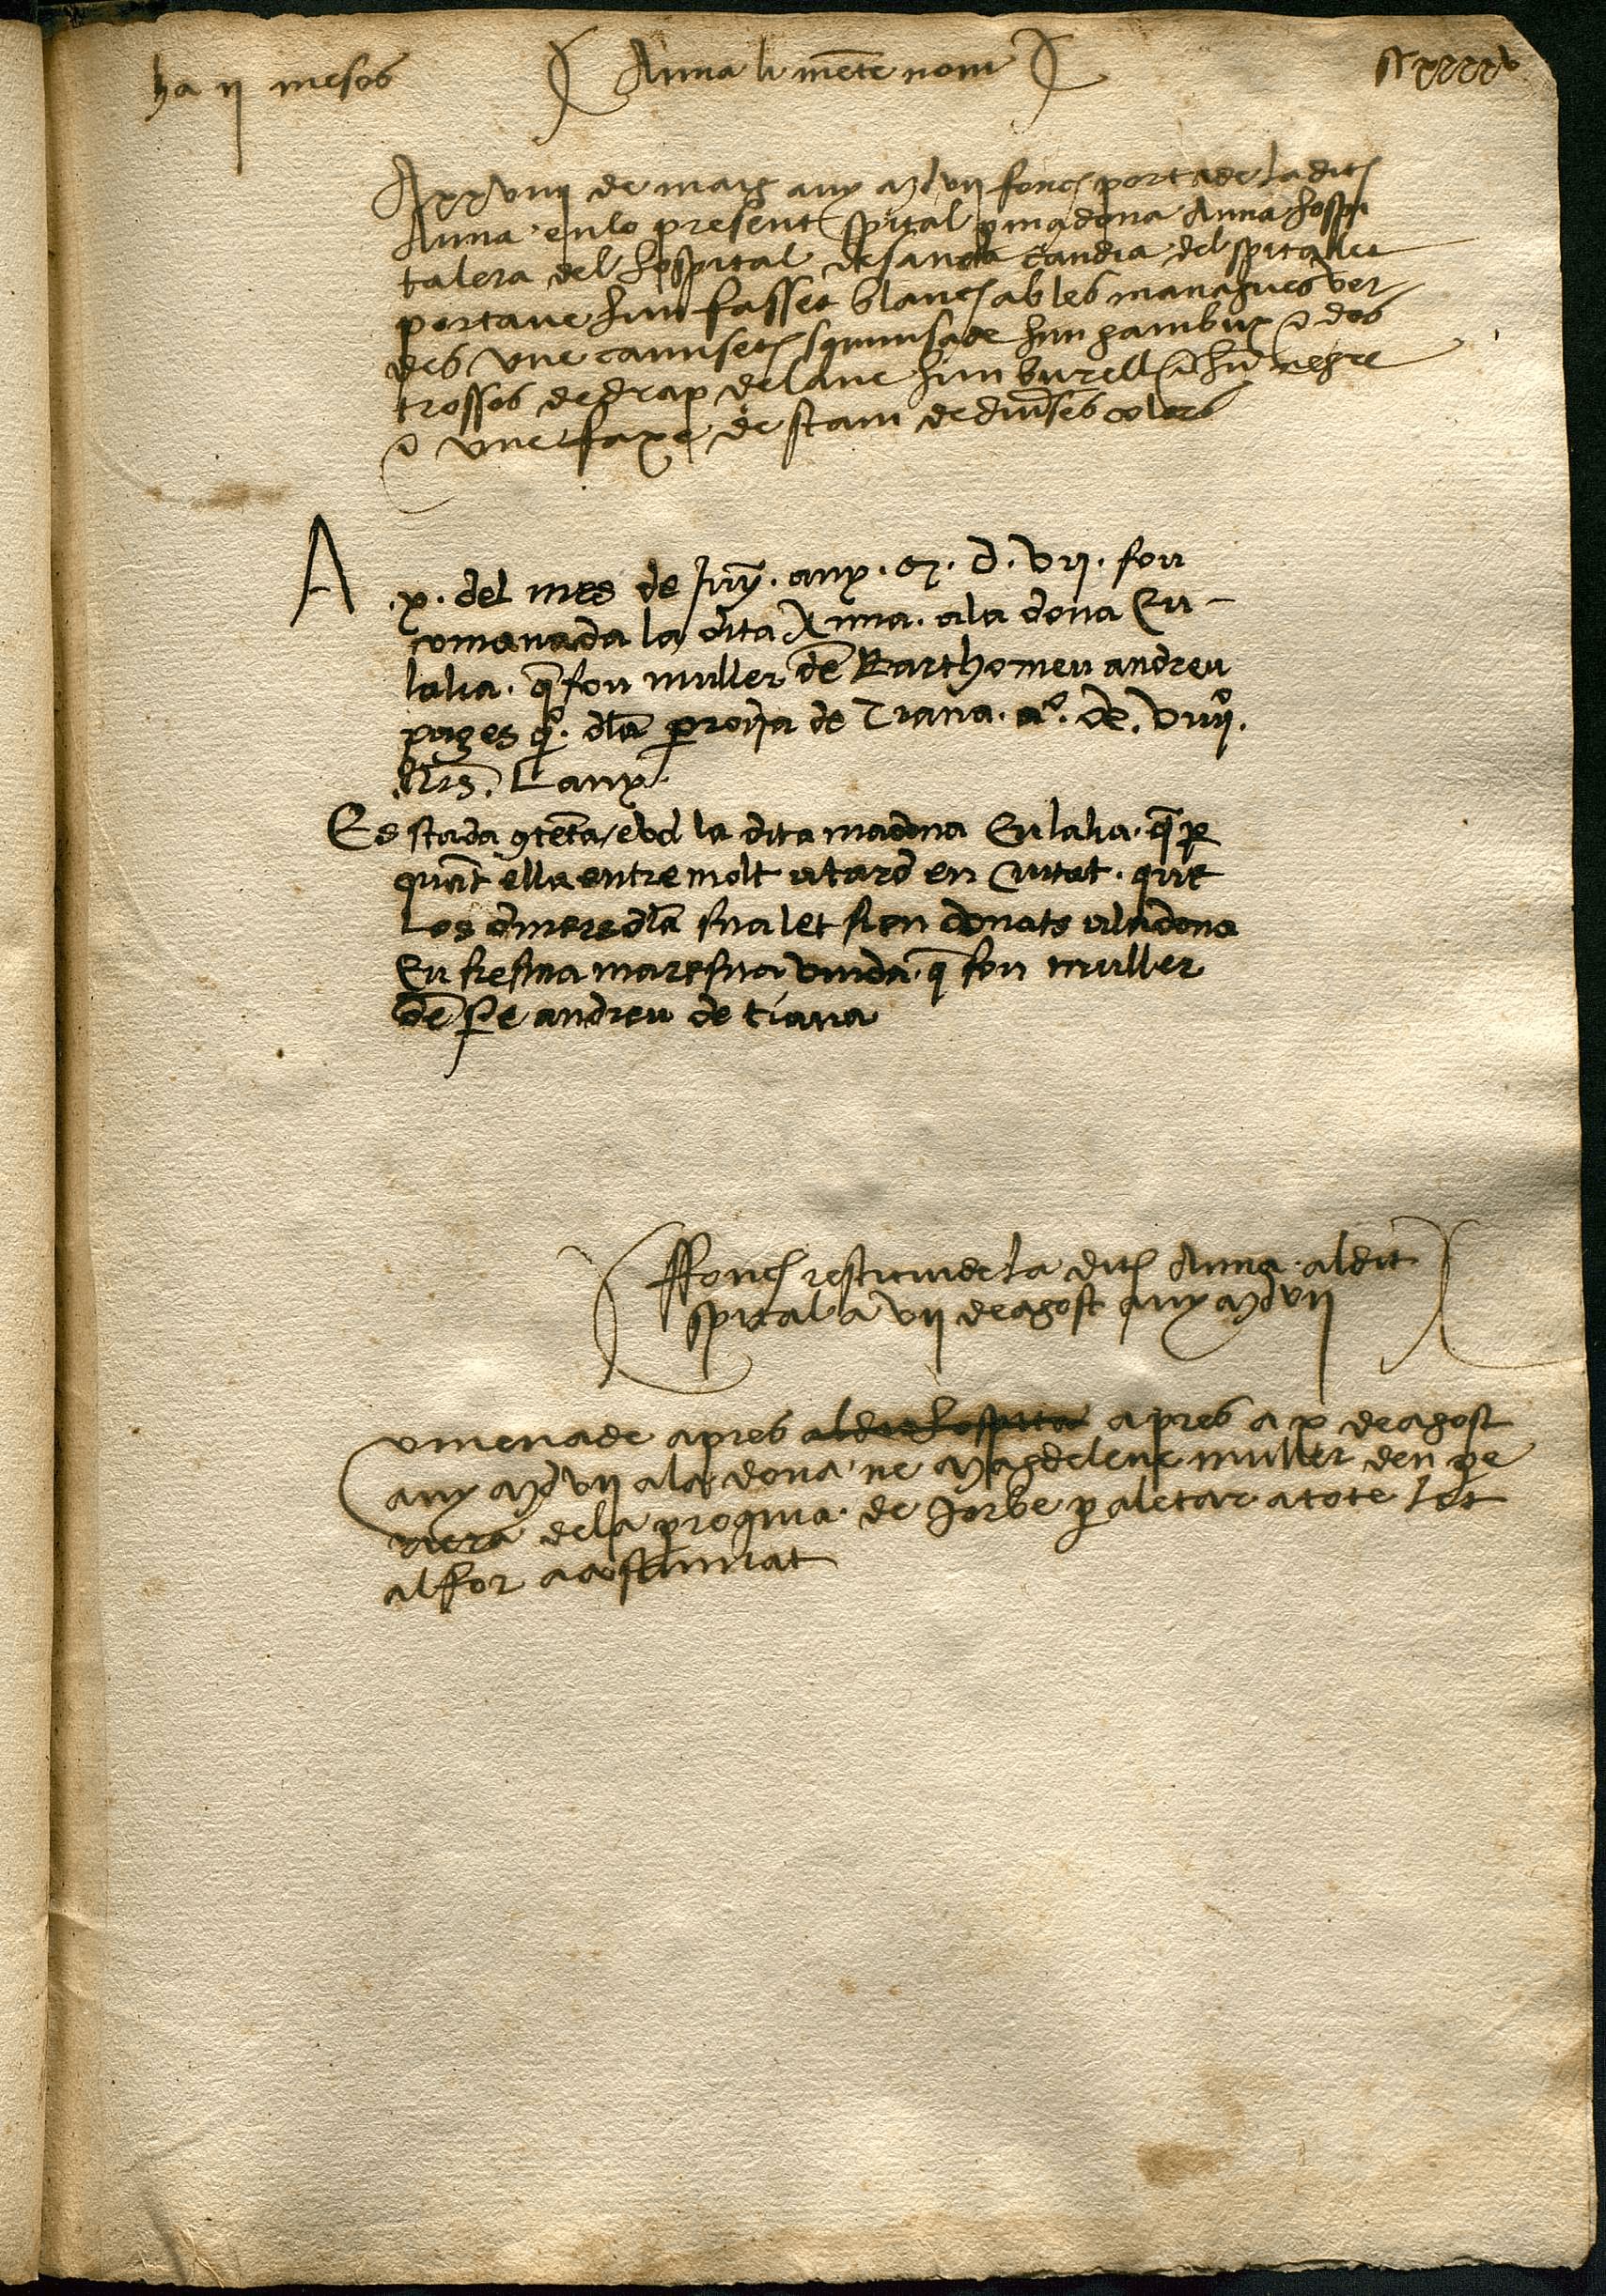 ha ii mesos
Anna li mete nom
A xxviiii de maig any mdvii fonch portade la dita
Anna en lo present spital p madona Anna hospi
talera del hospital de sancta Candia del spitallet
portave hun fasset blanch ab les manegues ver
des une camiseta squinsade hun gambux e dos
trossos de drap de lane hun burell e hu negre
e une faxe de stam de diverses colors
A .x. del mes de Juny. any. M. d. vii. fou
comanada la dita Anna. a la dona Eu-
lalia. q fou muller de Barthomeu andreu
pages q°. dla parroqia de Tiana. a°. de. viiii.
lliures. L any.
Es stada contenta la dita madona Eulalia. q per
quant ella entre molt a tard en Ciutat. que
Los dines dla sua let sien donats a la dona
Eufresina mare sua viuda. q fou muller
de Pe andreu de tiana
Ffonch restituide la dita Anna al dit
spital a vii de agost any mdvii
comenade apres apres a x de agost
any mdvii a la dona ne Magdelene muller den pe
riera de la proquia de Jorbe p aletar a tote let
al for acostumat